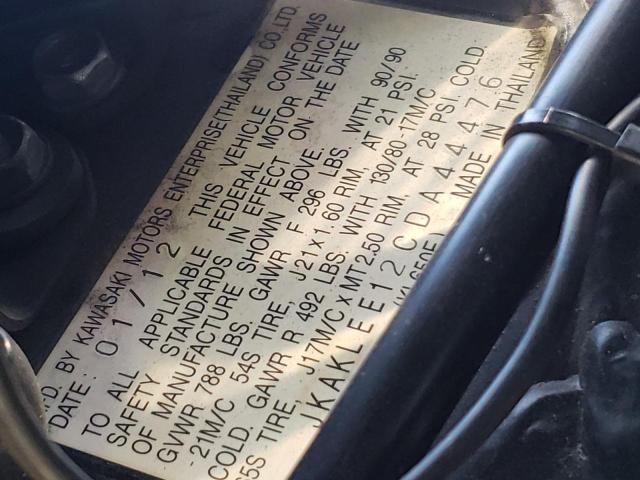 FD. BY KAWASAKI MOTORS ENTERPRISE(THAILAND) CO., LTD.
DATE: 01/12 THIS VEHICLE CONFORMS
TO ALL APPLICABLE FEDERAL MOTOR VEHICLE
SAFETY STANDARDS IN EFFECT ON THE DATE
OF MANUFACTURE SHOWN ABOVE.
GVWR 788 LBS. GAWR F 296 LBS. WITH 90/90
-21M/C 54S TIRE, J21×1.60 RIM. AT 21 PSI.
COLD. GAWR R 492 LBS. WITH 130/80-17M/C
65S TIRE, J17M/C×MT2.50 RIM. AT 28 PSI. COLD.
JKAKLEE12CDA44476
KL650E) MADE IN THAILAND